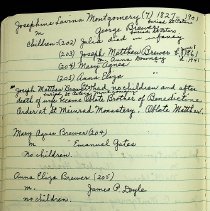 Josephine Lavina Montgomery (7) 1827
m George Brewer
Children: (202) Julia died in infancy
(203) Joseph Matthew Brewer
m. Anna
(204) Mary Agnes
(205) Anna Eliza
Joseph Matthew Brewer had no children and after
death of wife became Oblate Brother of Benedictine
Order at St Meinrad Monastery. Oblate Matthew.
Mary Agnes Brewer (204)
m Emanuel Gates
No children.
Anna Eliza Brewer (205)
m. James P Doyle
no children.